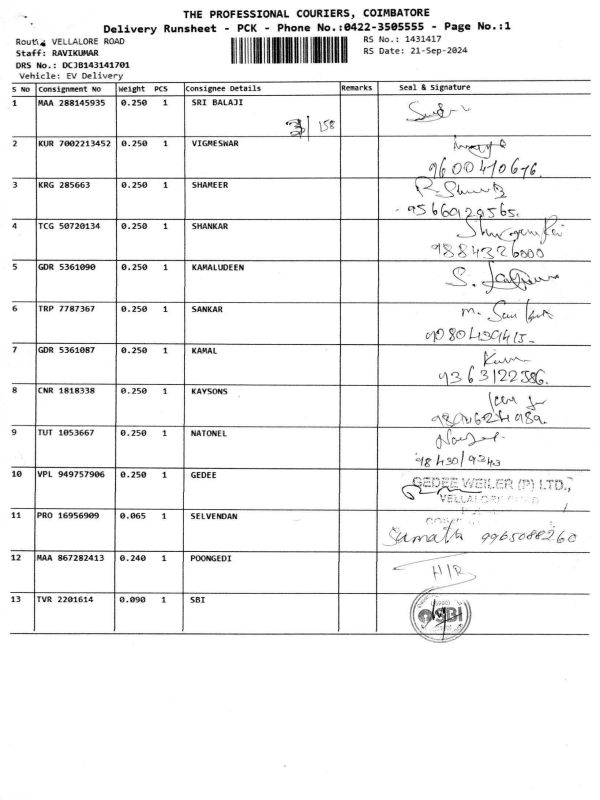 THE PROFESSIONAL COURIERS, COIMBATORE
Delivery Runsheet - PCK - Phone No.:0422-3505555 - Page No.:1
Route: VELLALORE ROAD
RS No.: 1431417
Staff: RAVIKUMAR
RS Date: 21-Sep-2024
DRS No.: DCJB143141701
Vehicle: EV Delivery
S No Consignment No Weight PCS Consignee Details Remarks Seal & Signature
1 MAA 288145935 0.250 1 SRI BALAJI
158
2 KUR 7002213452 0.250 1 VIGMESWAR
9600410676.
3 KRG 285663 0.250 1 SHAMEER
4 TCG 50720134 0.250 1 SHANKAR
9884326000
5 GDR 5361090 0.250 1 KAMALUDEEN
6 TRP 7787367 0.250 1 SANKAR
7 GDR 5361087 0.250 1 KAMAL
9363122586.
8 CNR 1818338 0.250 1 KAYSONS
9 TUT 1053667 0.250 1 NATONEL
9843019343
10 VPL 949757906 0.250 1 GEDEE
GEDEE WEILER (P) LTD.,
VELLALORE ROAD
11 PRO 16956909 0.065 1 SELVENDAN
Sumathi 9965088260
12 MAA 867282413 0.240 1 POONGEDI
13 TVR 2201614 0.090 1 SBI
SBI